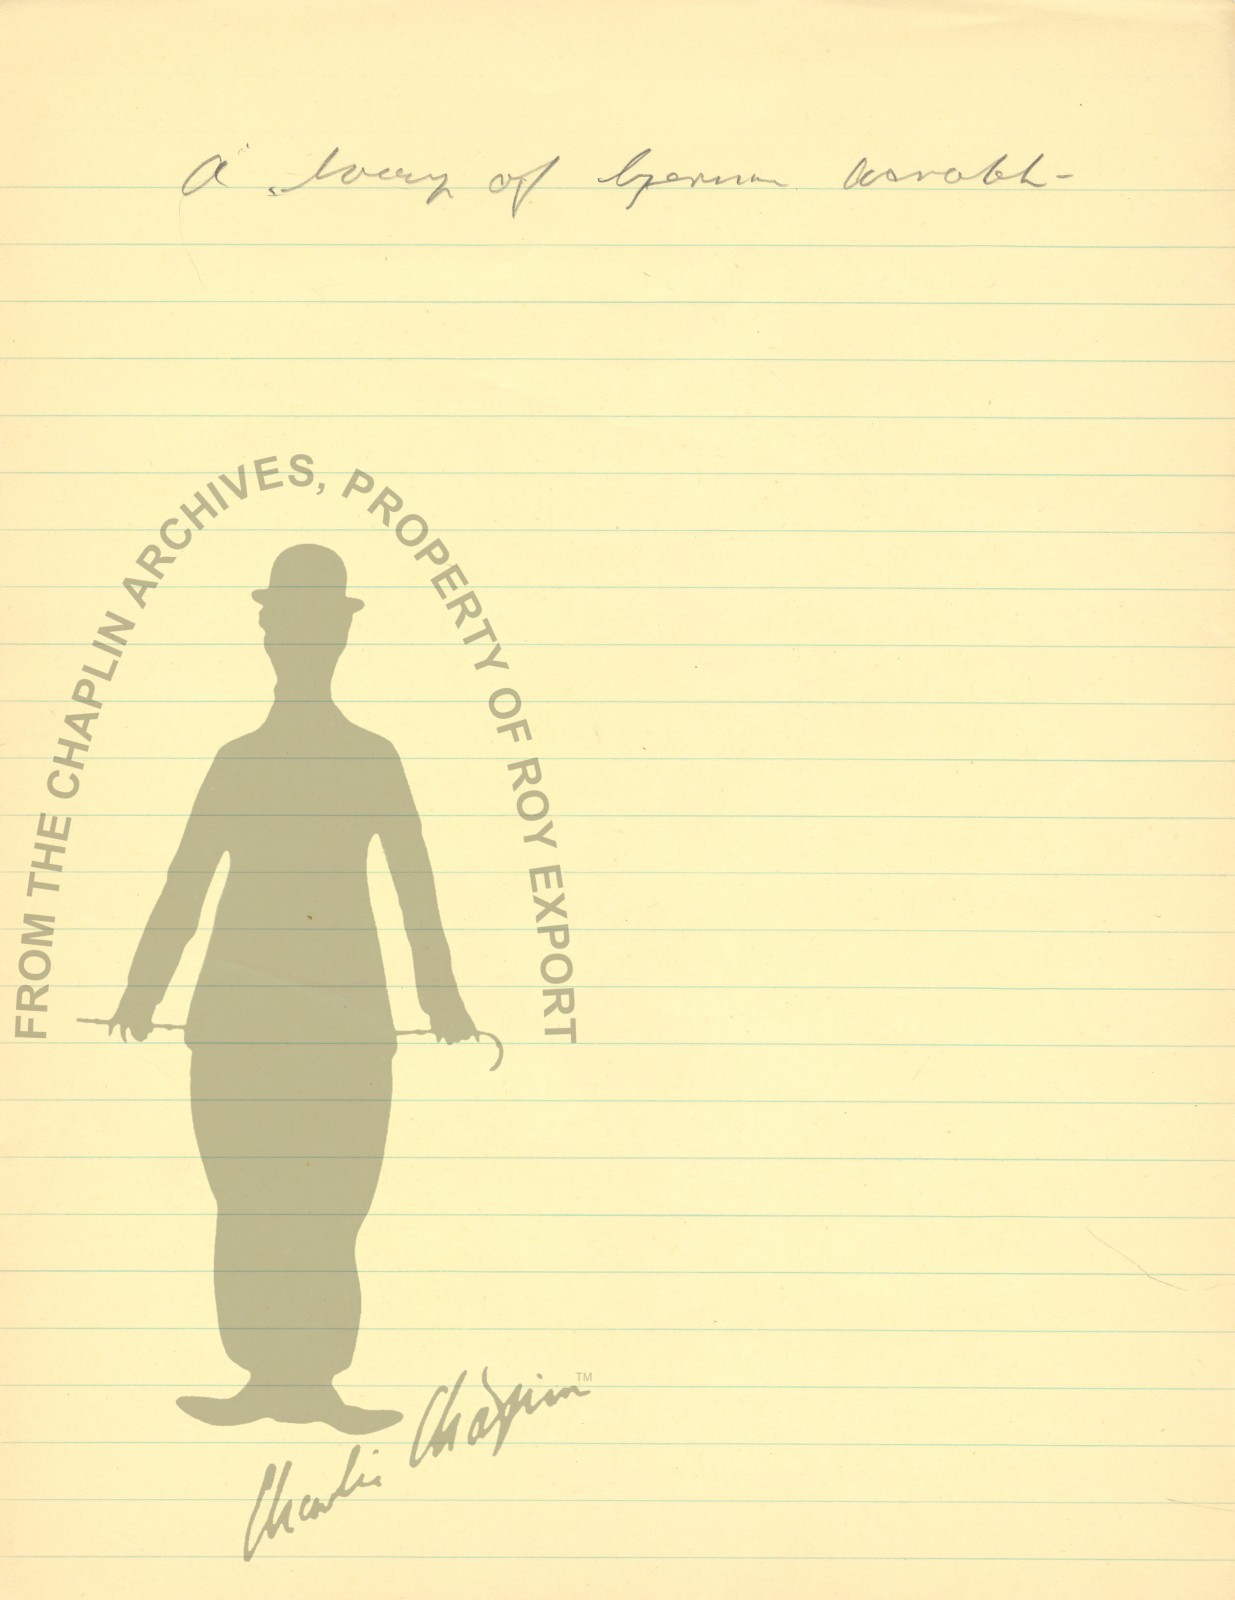 A story of German
FROM THE CHAPLIN ARCHIVES, PROPERTY OF ROY EXPORT
Charlie Chaplin™